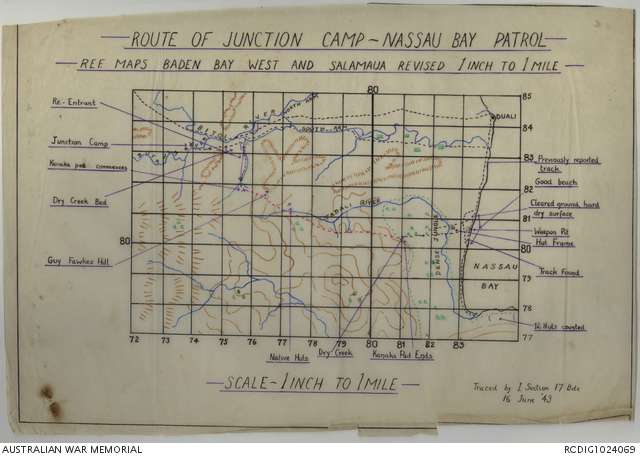 ROUTE OF JUNCTION CAMP - NASSAU BAY PATROL
REF MAPS BADEN BAY WEST AND SALAMAUA REVISED 1 INCH TO 1 MILE
80
85
84
83
82
81
80
79
78
77
Re-Entrant
Junction Camp
Kanaka pad commences
Dry Creek Bed
80
Guy Fawkes Hill
BITOI RIVER
NORTH ARM
SOUTH ARM
DUALI
KABALI RIVER
DENSE JUNGLE
NASSAU
BAY
Previously reported
track
Good beach
Cleared ground, hard
dry surface
Weapon Pit
Hut Frame
Track Found
Huts counted
72 73 74 75 76 77 78 79 80 81 82 83
Native Huts
Dry Creek
Kanaka Pad Ends
SCALE - 1 INCH TO 1 MILE
Traced by I Section 17 Bde
16 June '43
AUSTRALIAN WAR MEMORIAL
RCDIG1024069